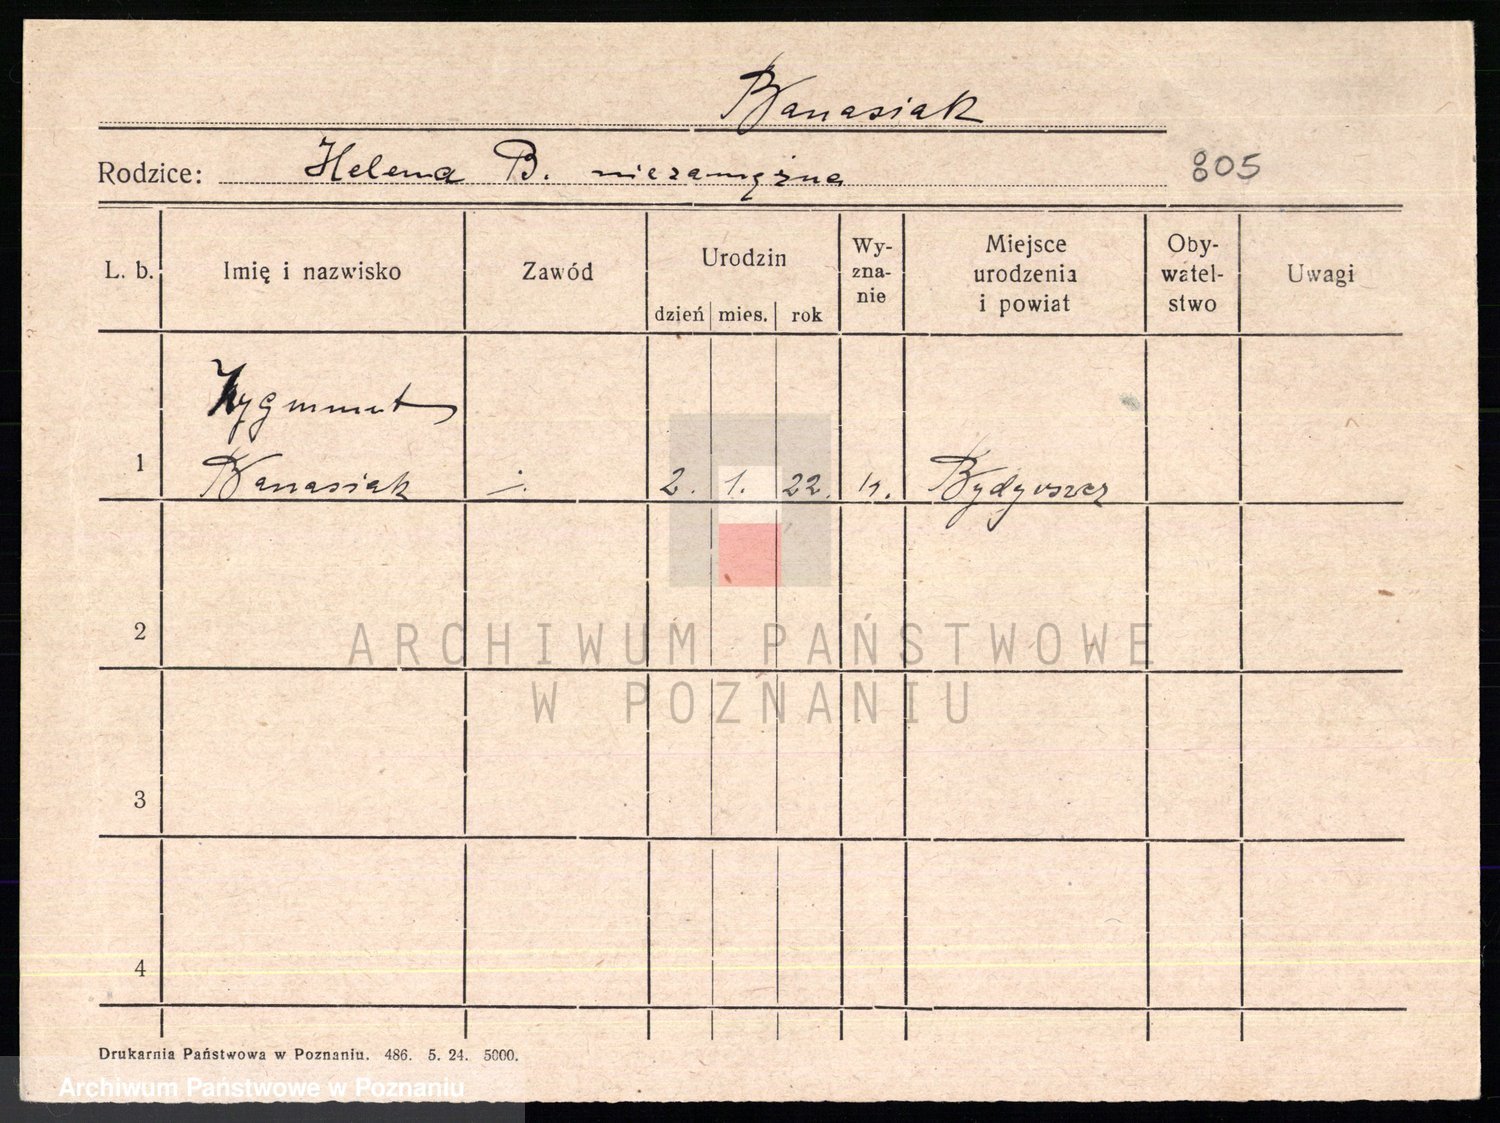 Banasiak
Rodzice: Helena B. niezamężna
805
L. b.
Imię i nazwisko
Zawód
Urodzin
dzień mies. rok
Wy-
zna-
nie
Miejsce
urodzenia
i powiat
Oby-
watel-
stwo
Uwagi
Zygmunt
1 Banasiak 2. 1. 22.
2
3
4
ARCHIWUM PAŃSTWOWE
W POZNANIU
Drukarnia Państwowa w Poznaniu. 486. 5. 24. 5000.
Archiwum Państwowe w Poznaniu